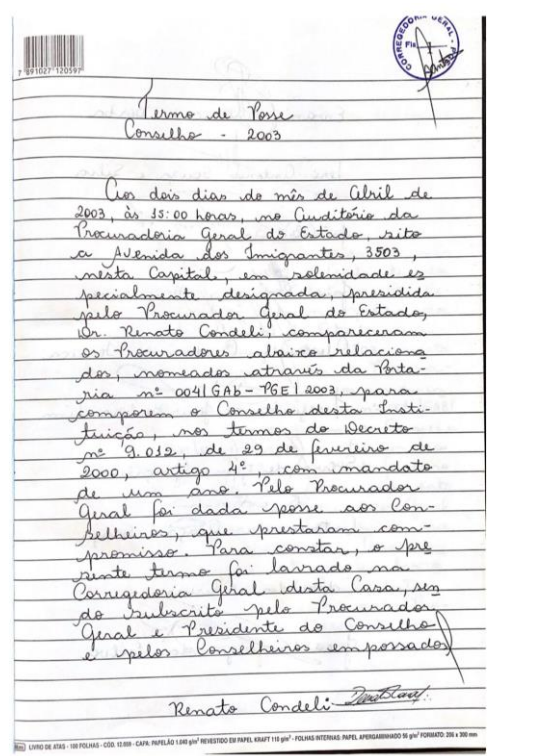 7 891027 120597
CORREGEDORIA GERAL
Fls
Termo de Posse
Conselho - 2003
Aos dois dias do mês de Abril de
2003, às 15:00 horas, no Auditório da
Procuradoria Geral do Estado, sito
a Avenida dos Imigrantes, 3503,
nesta Capital, em solenidade es
pecialmente designada, presidida
pelo Procurador Geral do Estado,
Dr. Renato Condeli, compareceram
os Procuradores abaixo relaciona
dos, nomeados através da Porta-
ria nº 004/GAb-PGE/2003, para
comporem o Conselho desta Insti-
tuição, nos termos do Decreto
nº 9.012, de 29 de fevereiro de
2000, artigo 4º, com mandato
de um ano. Pelo Procurador
Geral foi dada posse aos Con-
selheiros, que prestaram com-
promisso. Para constar, o pre
sente termo foi lavrado na
Corregedoria Geral desta Casa, sen
do subscrito pelo Procurador
Geral e Presidente do Conselho
e pelos Conselheiros empossados
Renato Condeli
LIVRO DE ATAS - 100 FOLHAS - CÓD. 12.059 - CAPA: PAPELÃO 1.040 g/m² REVESTIDO EM PAPEL KRAFT 110 g/m² - FOLHAS INTERNAS: PAPEL APERGAMINHADO 56 g/m² FORMATO: 206 x 300 mm